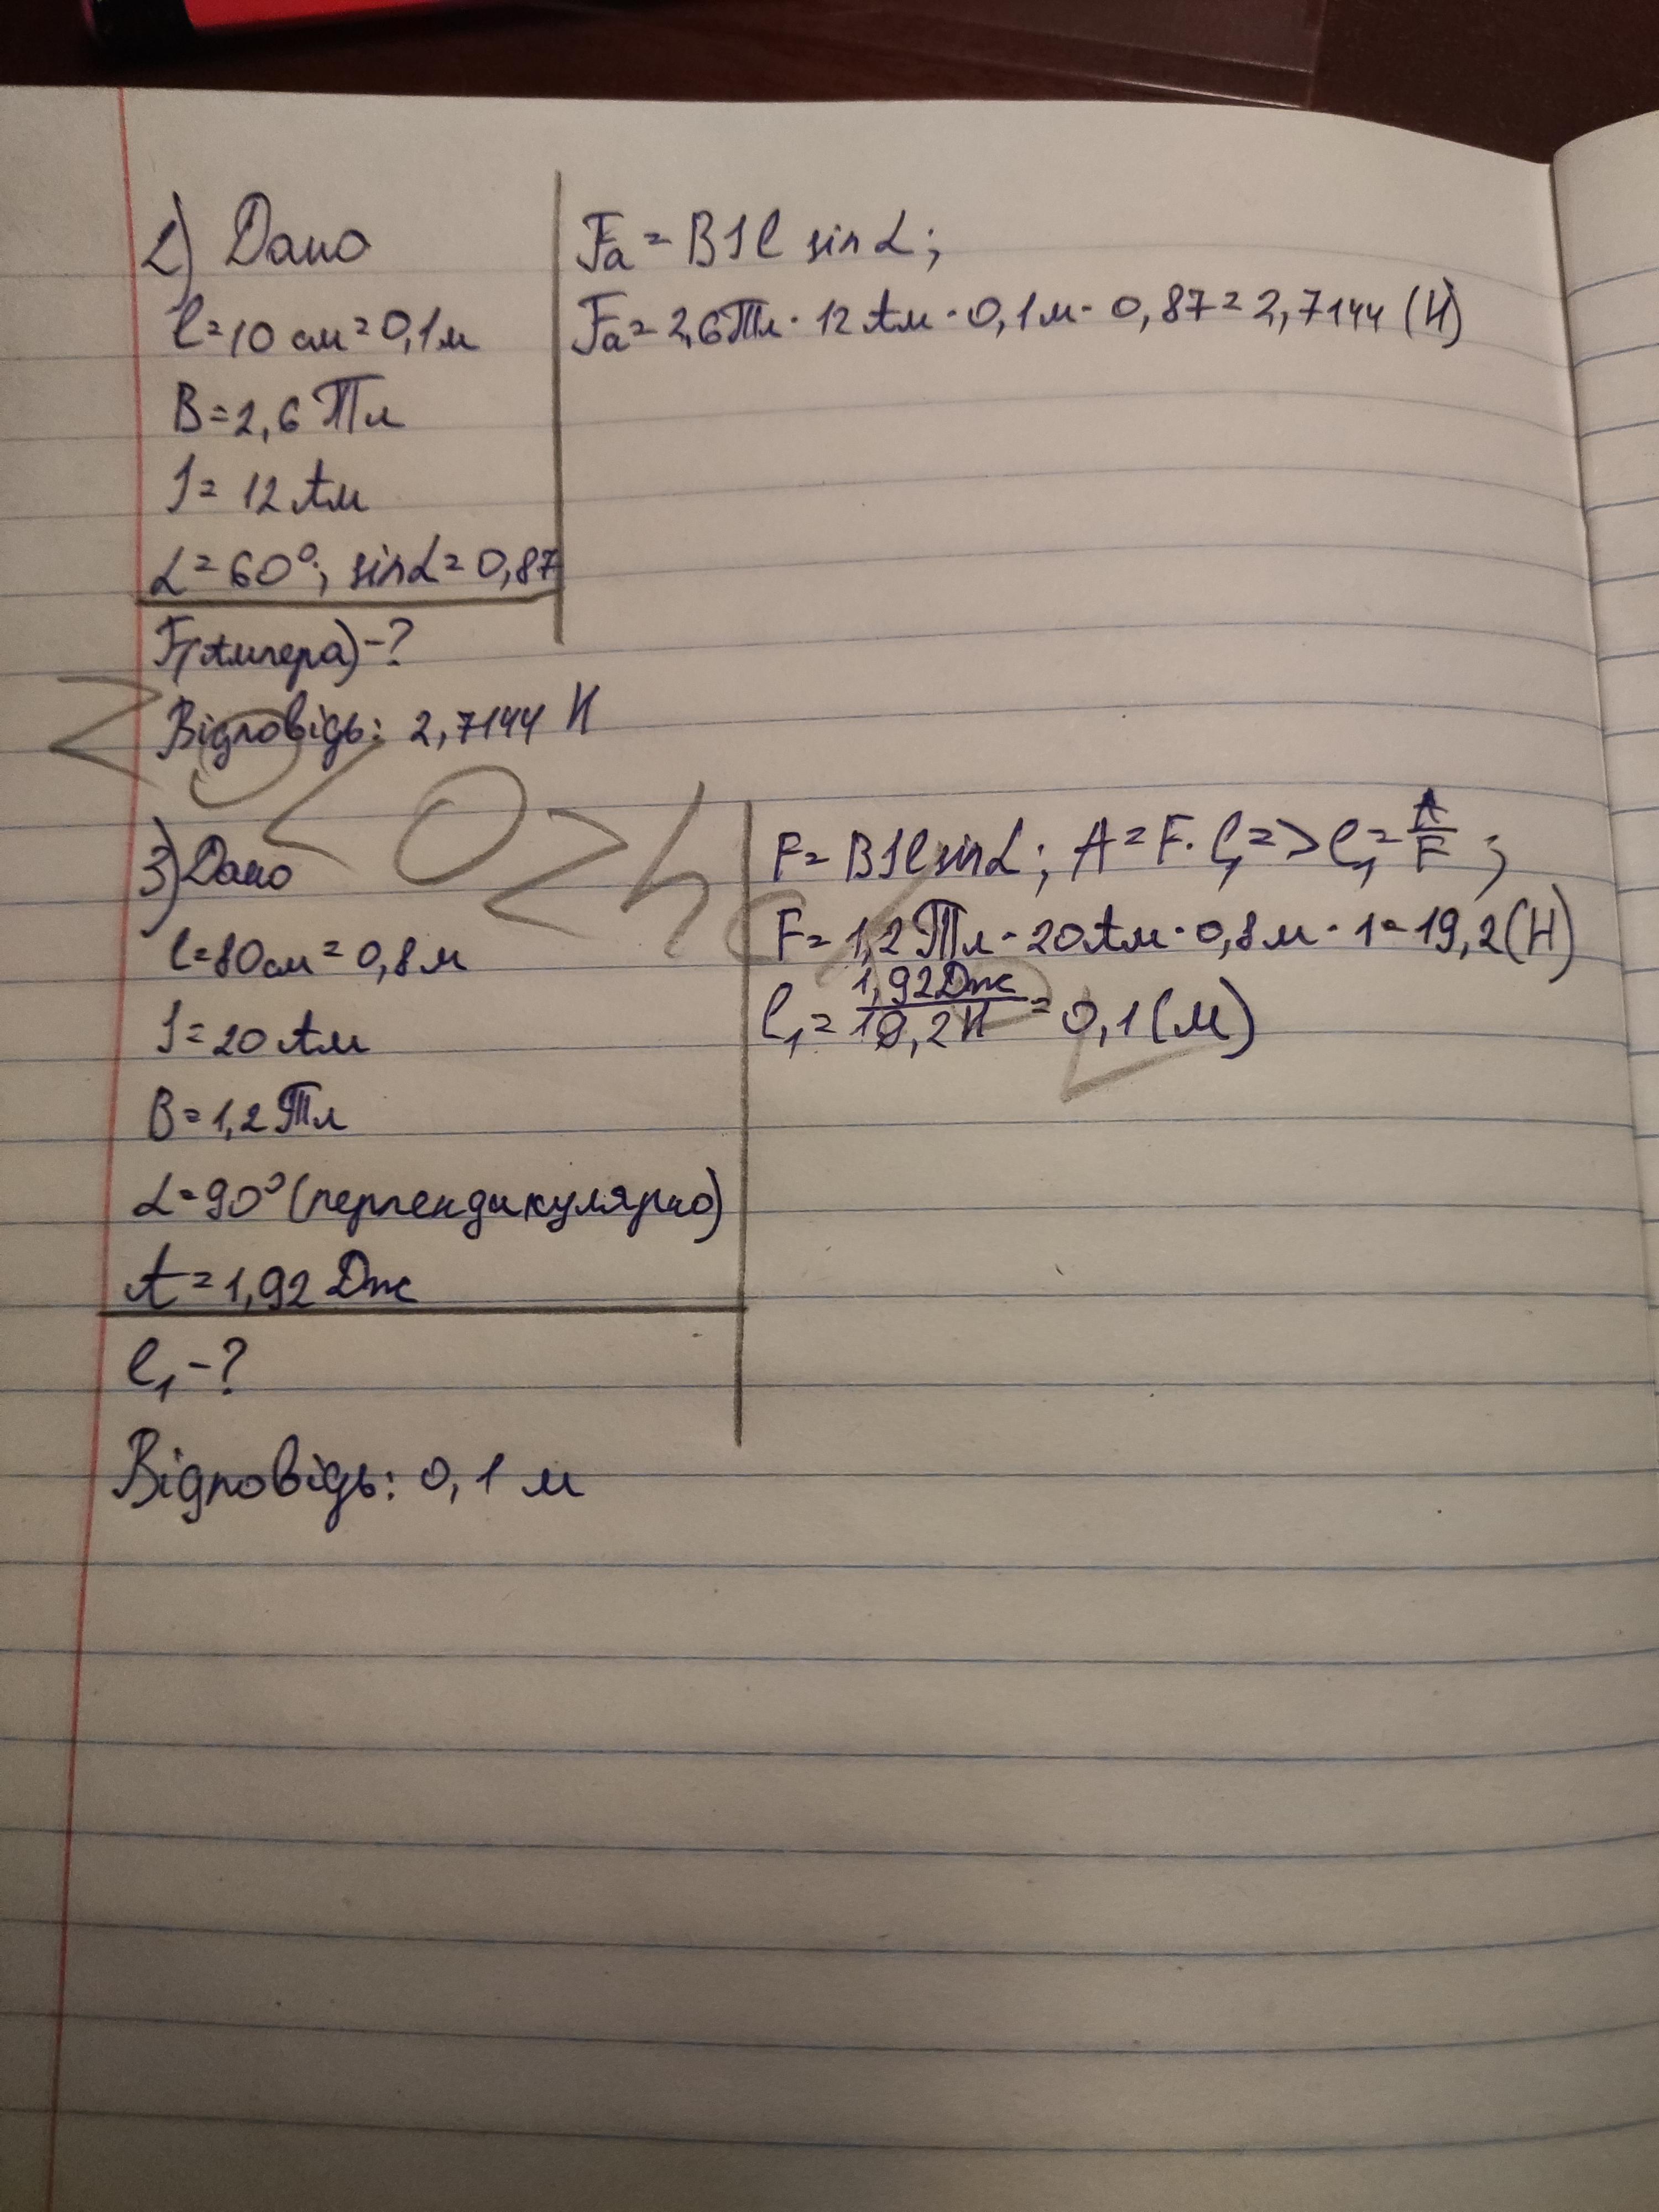 2) Дано
l=10 см=0,1м
B=2,6 Тл
I= 12 Ам
α=60°; sinα=0,87
F(Ампера)-?
Відповідь: 2,7144 Н
Fa=BIl sin α;
Fa=2,6Тл·12Ам·0,1м·0,87=2,7144 (Н)
3) Дано
l=80см=0,8м
I=20 Ам
B=1,2 Тл
α=90°(перпендикулярно)
A=1,92 Дж
l₁-?
Відповідь: 0,1 м
F=BIlsinα; A=F·l₁=>l₁=A/F;
F=1,2Тл·20Ам·0,8м·1=19,2(Н)
l₁=1,92Дж/19,2Н=0,1(м)